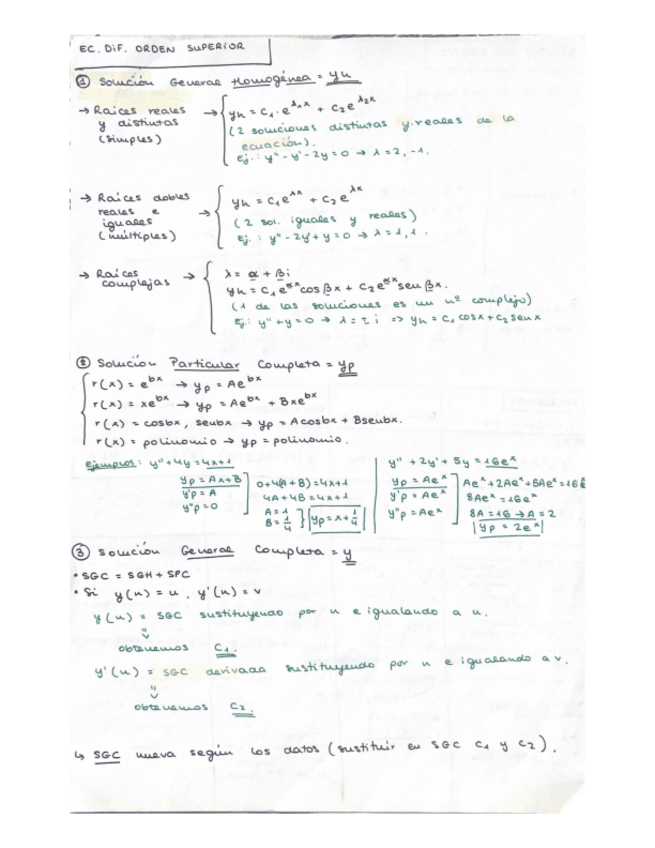 EC. DIF. ORDEN SUPERIOR
① Solución General Homogénea = yh
→ Raíces reales y distintas (simples) → yh = C₁·e^λ₁x + C₂e^λ₂x
(2 soluciones distintas y reales de la ecuación).
Ej.: y'' - y' - 2y = 0 → λ = 2, -1.
→ Raíces dobles reales e iguales (múltiples) → yh = C₁e^λx + C₂e^λx
(2 sol. iguales y reales)
Ej.: y'' - 2y' + y = 0 → λ = 1, 1.
→ Raíces complejas → λ = α + βi
yh = C₁e^αx cos βx + C₂e^αx sen βx.
(1 de las soluciones es un nº complejo)
Ej: y'' + y = 0 → λ = ± i => yh = C₁ cosx + C₂ senx
② Solución Particular Completa = yp
r(x) = e^bx → yp = Ae^bx
r(x) = xe^bx → yp = Ae^bx + Bxe^bx
r(x) = cosbx, senbx → yp = Acosbx + Bsenbx.
r(x) = polinomio → yp = polinomio.
Ejemplos: y'' + 4y = 4x+1
yp = Ax+B
y'p = A
y''p = 0
0+4(A+B) = 4x+1
4A+4B = 4x+1
A = 1
B = 1/4
yp = x + 1/4
y'' + 2y' + 5y = 16e^x
yp = Ae^x
y'p = Ae^x
y''p = Ae^x
Ae^x + 2Ae^x + 5Ae^x = 16e^x
8Ae^x = 16e^x
8A = 16 → A = 2
yp = 2e^x
③ Solución General Completa = y
• SGC = SGH + SPC
• Si y(u) = u, y'(u) = v
y(u) = SGC sustituyendo por u e igualando a u.
obtenemos C₁.
y'(u) = SGC derivada sustituyendo por u e igualando a v.
obtenemos C₂.
↳ SGC nueva según los datos (sustituir en SGC C₁ y C₂).